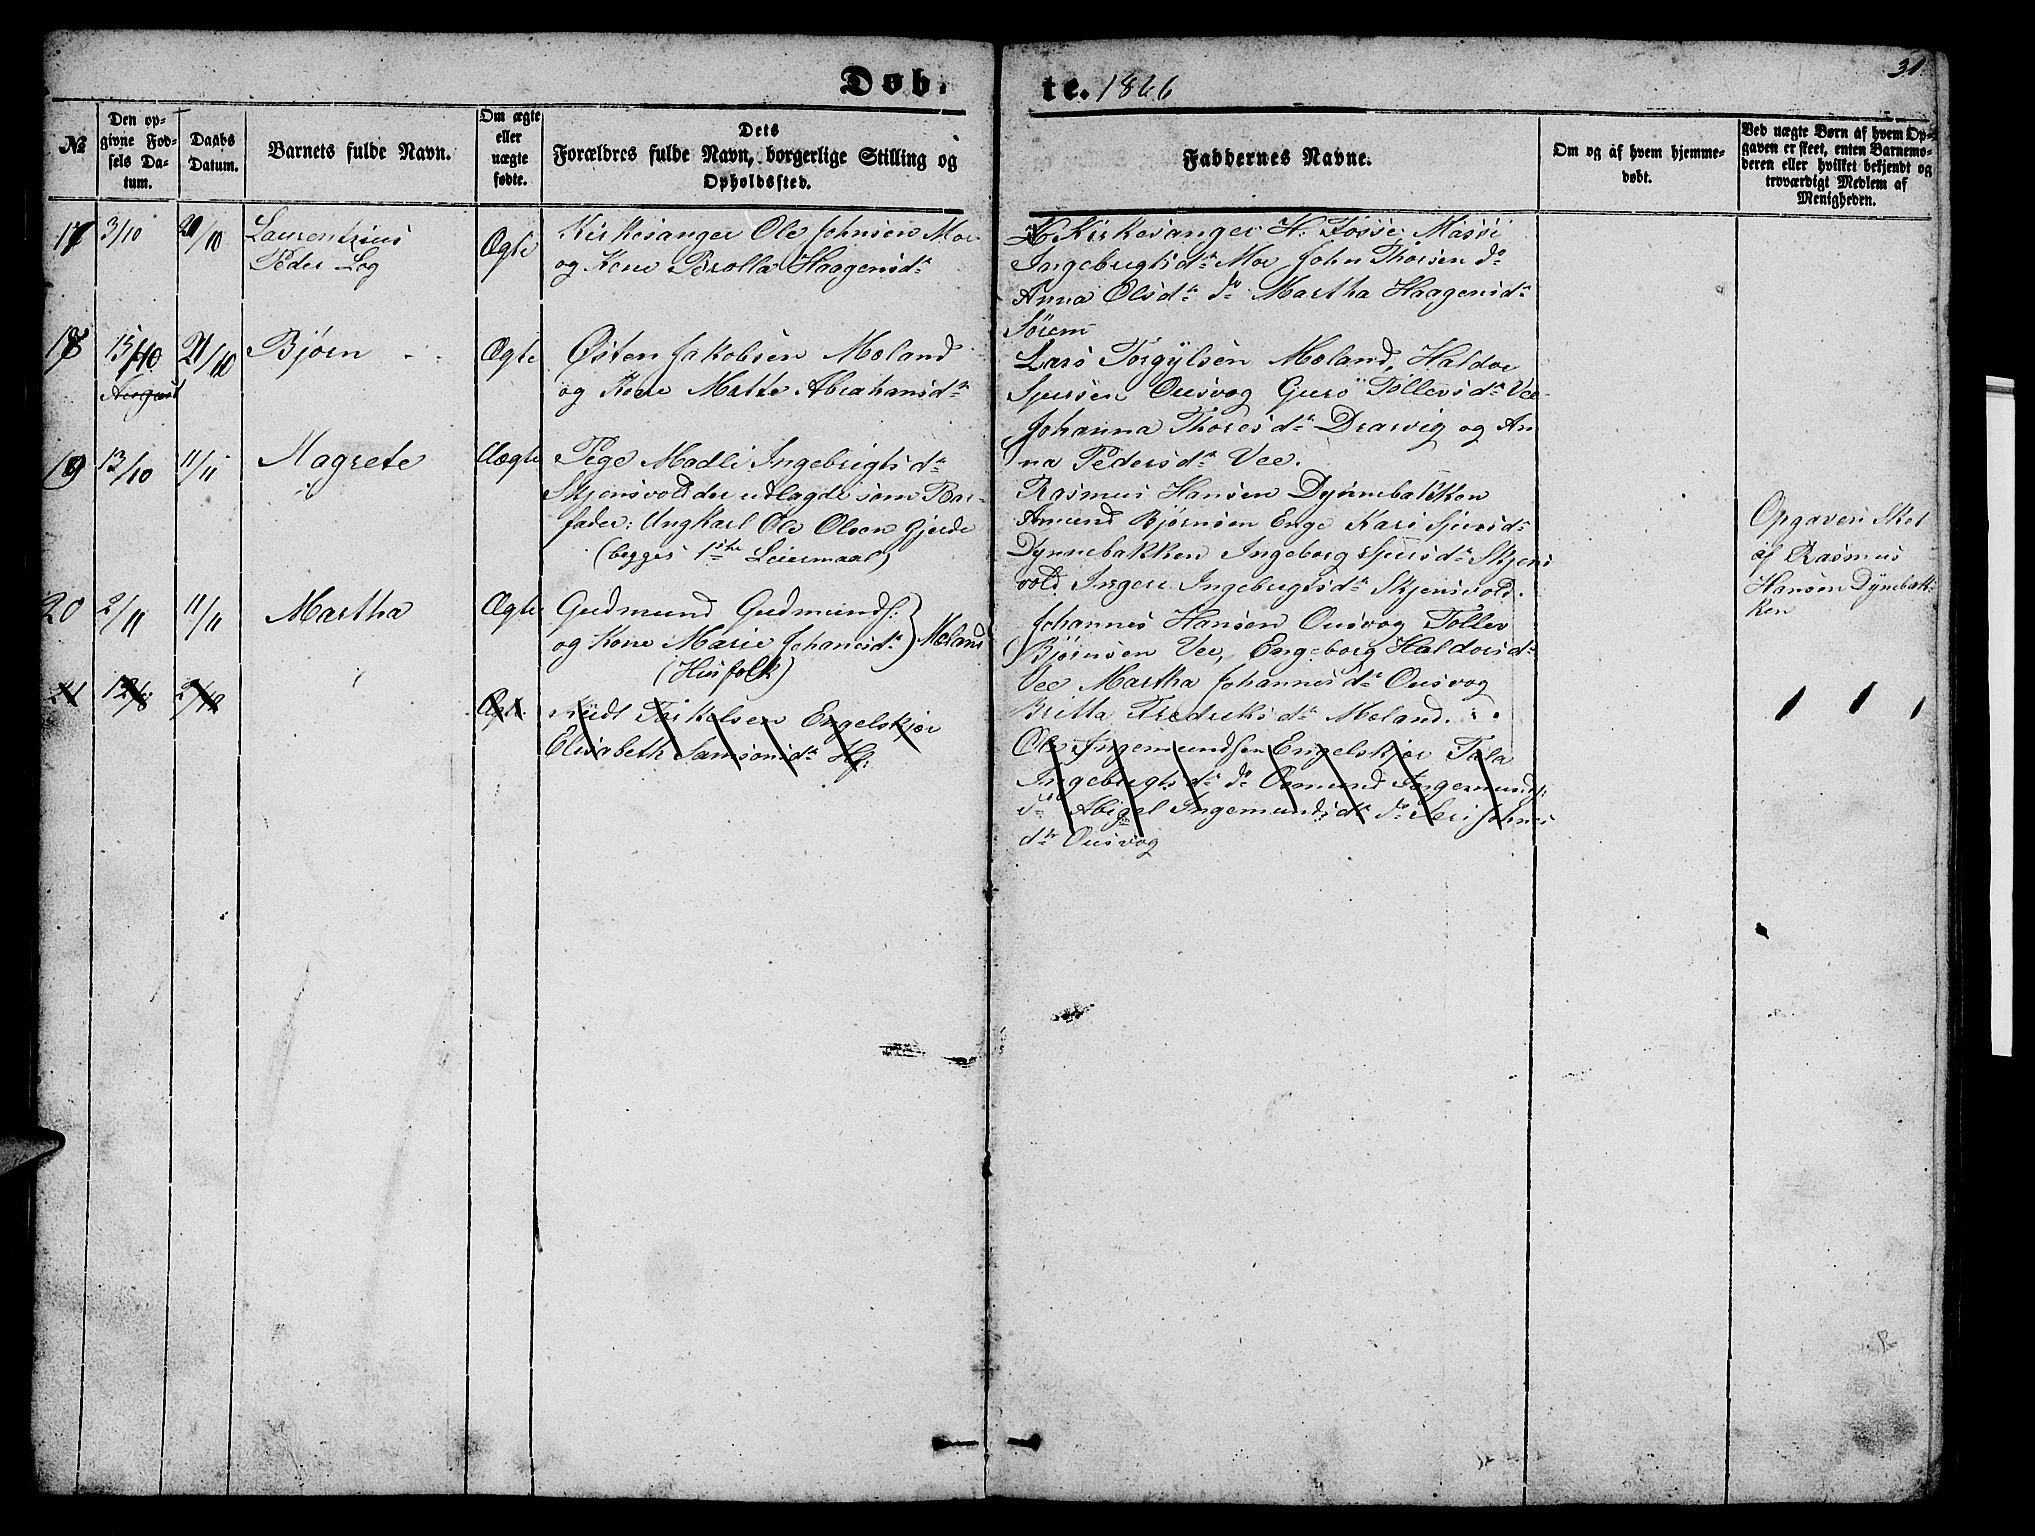 Døb.
te. 1866
31.
№
Den op-
givne Fød-
sels Da-
tum.
Daabs
Datum.
Barnets fulde Navn.
Om ægte
eller
uægte
fødte.
Dets
Forældres fulde Navn, borgerlige Stilling og
Opholdssted.
Faddernes Navne.
Om og af hvem hjemme-
døbt.
Ved uægte Børn af hvem Op-
gaven er skeet, enten Barnemo-
deren eller hvilket bekjendt og
troværdigt Medlem af
Menigheden.
17
3/10
21/10
Laurentzius
Peder Log
Ægte
Kirkesanger Ole Johnsen Moe
og Kone Brolla Haagensdr
Kirkesanger H. Fosse Massi
Ingebrigtsdr Moe John Thorsen do
Anna Olsdr do Martha Haagensdr
Sørem
18
15/10
August
21/10
Bjørn
Ægte
Østen Jakobsen Mæland
og Kone Mette Abrahamsdr
Lars Torgylsen Mæland, Haldor
Sjursen Ousvog Guro Tollevsdr Vee
Johanna Thoresdr Drarvig og An
na Pedersdr Vee.
19
13/10
11/11
Magrete
Uægte
Pige Madli Ingebrigtsdr
Skjensvold der udlagde som Bar-
fader: Ungkarl Ole Olsen Gjerde
(begges 1ste Leiermaal)
Rasmus Hansen Dynnebakken
Amund Bjørnsen Enge Kari Sjursdr
Dynnebakken Ingeborg Sjursdr Skjens
vold Inger Ingebrigtsdr Skjensvold.
Opgaven Sket
af Rasmus
Hansen Dynebak-
ken
20
2/11
11/11
Martha
Ægte
Gudmund Gudmunds:
og Kone Marie Johanesdr } Mæland
(Husfolk)
Johannes Hansen Ousvog Tollev
Bjørnsen Vee, Engeborg Haldorsdr
Vee Martha Johannesdr Ousvog
Britta Fredriksdr Mæland.
21
Ægte
Knudt Torkelsen Engelskjær
Elisabeth Samsonsdr Hf:
Ole Ingemundsen Engelskjær Tala
Ingebrigtsdr do Osmund Ingemunds:
do Abigel Ingemundsdr do Seri Johnes
dr Ousvog